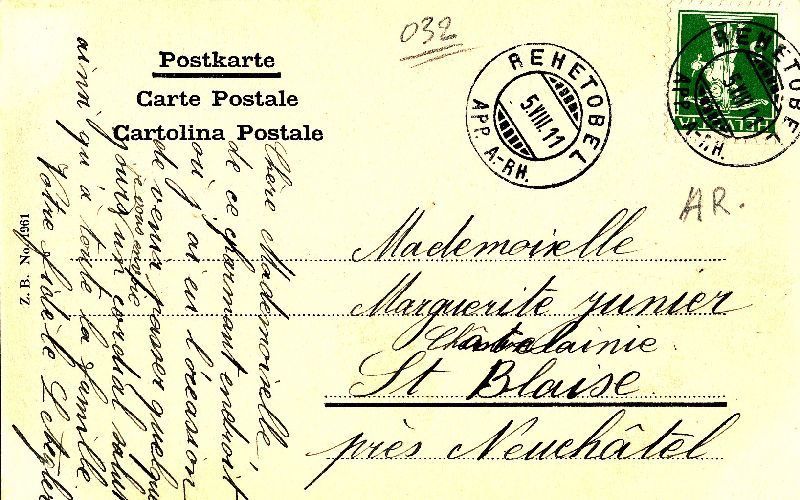 Postkarte
Carte Postale
Cartolina Postale
032
REHETOBEL
5.VIII.11
APP. A-RH.
REHETOBEL
APP. A-RH.
HELVETIA
AR.
Z. B. No. 1961
Mademoiselle
Marguerite Junier
Châtelainie
St Blaise
près Neuchâtel
Chère Mademoiselle,
de ce charmant endroit
où j'ai eu l'occasion
de venir passer quelques
je vous envoie
jours un cordial salut
ainsi qu'à toute la famille
Votre fidèle